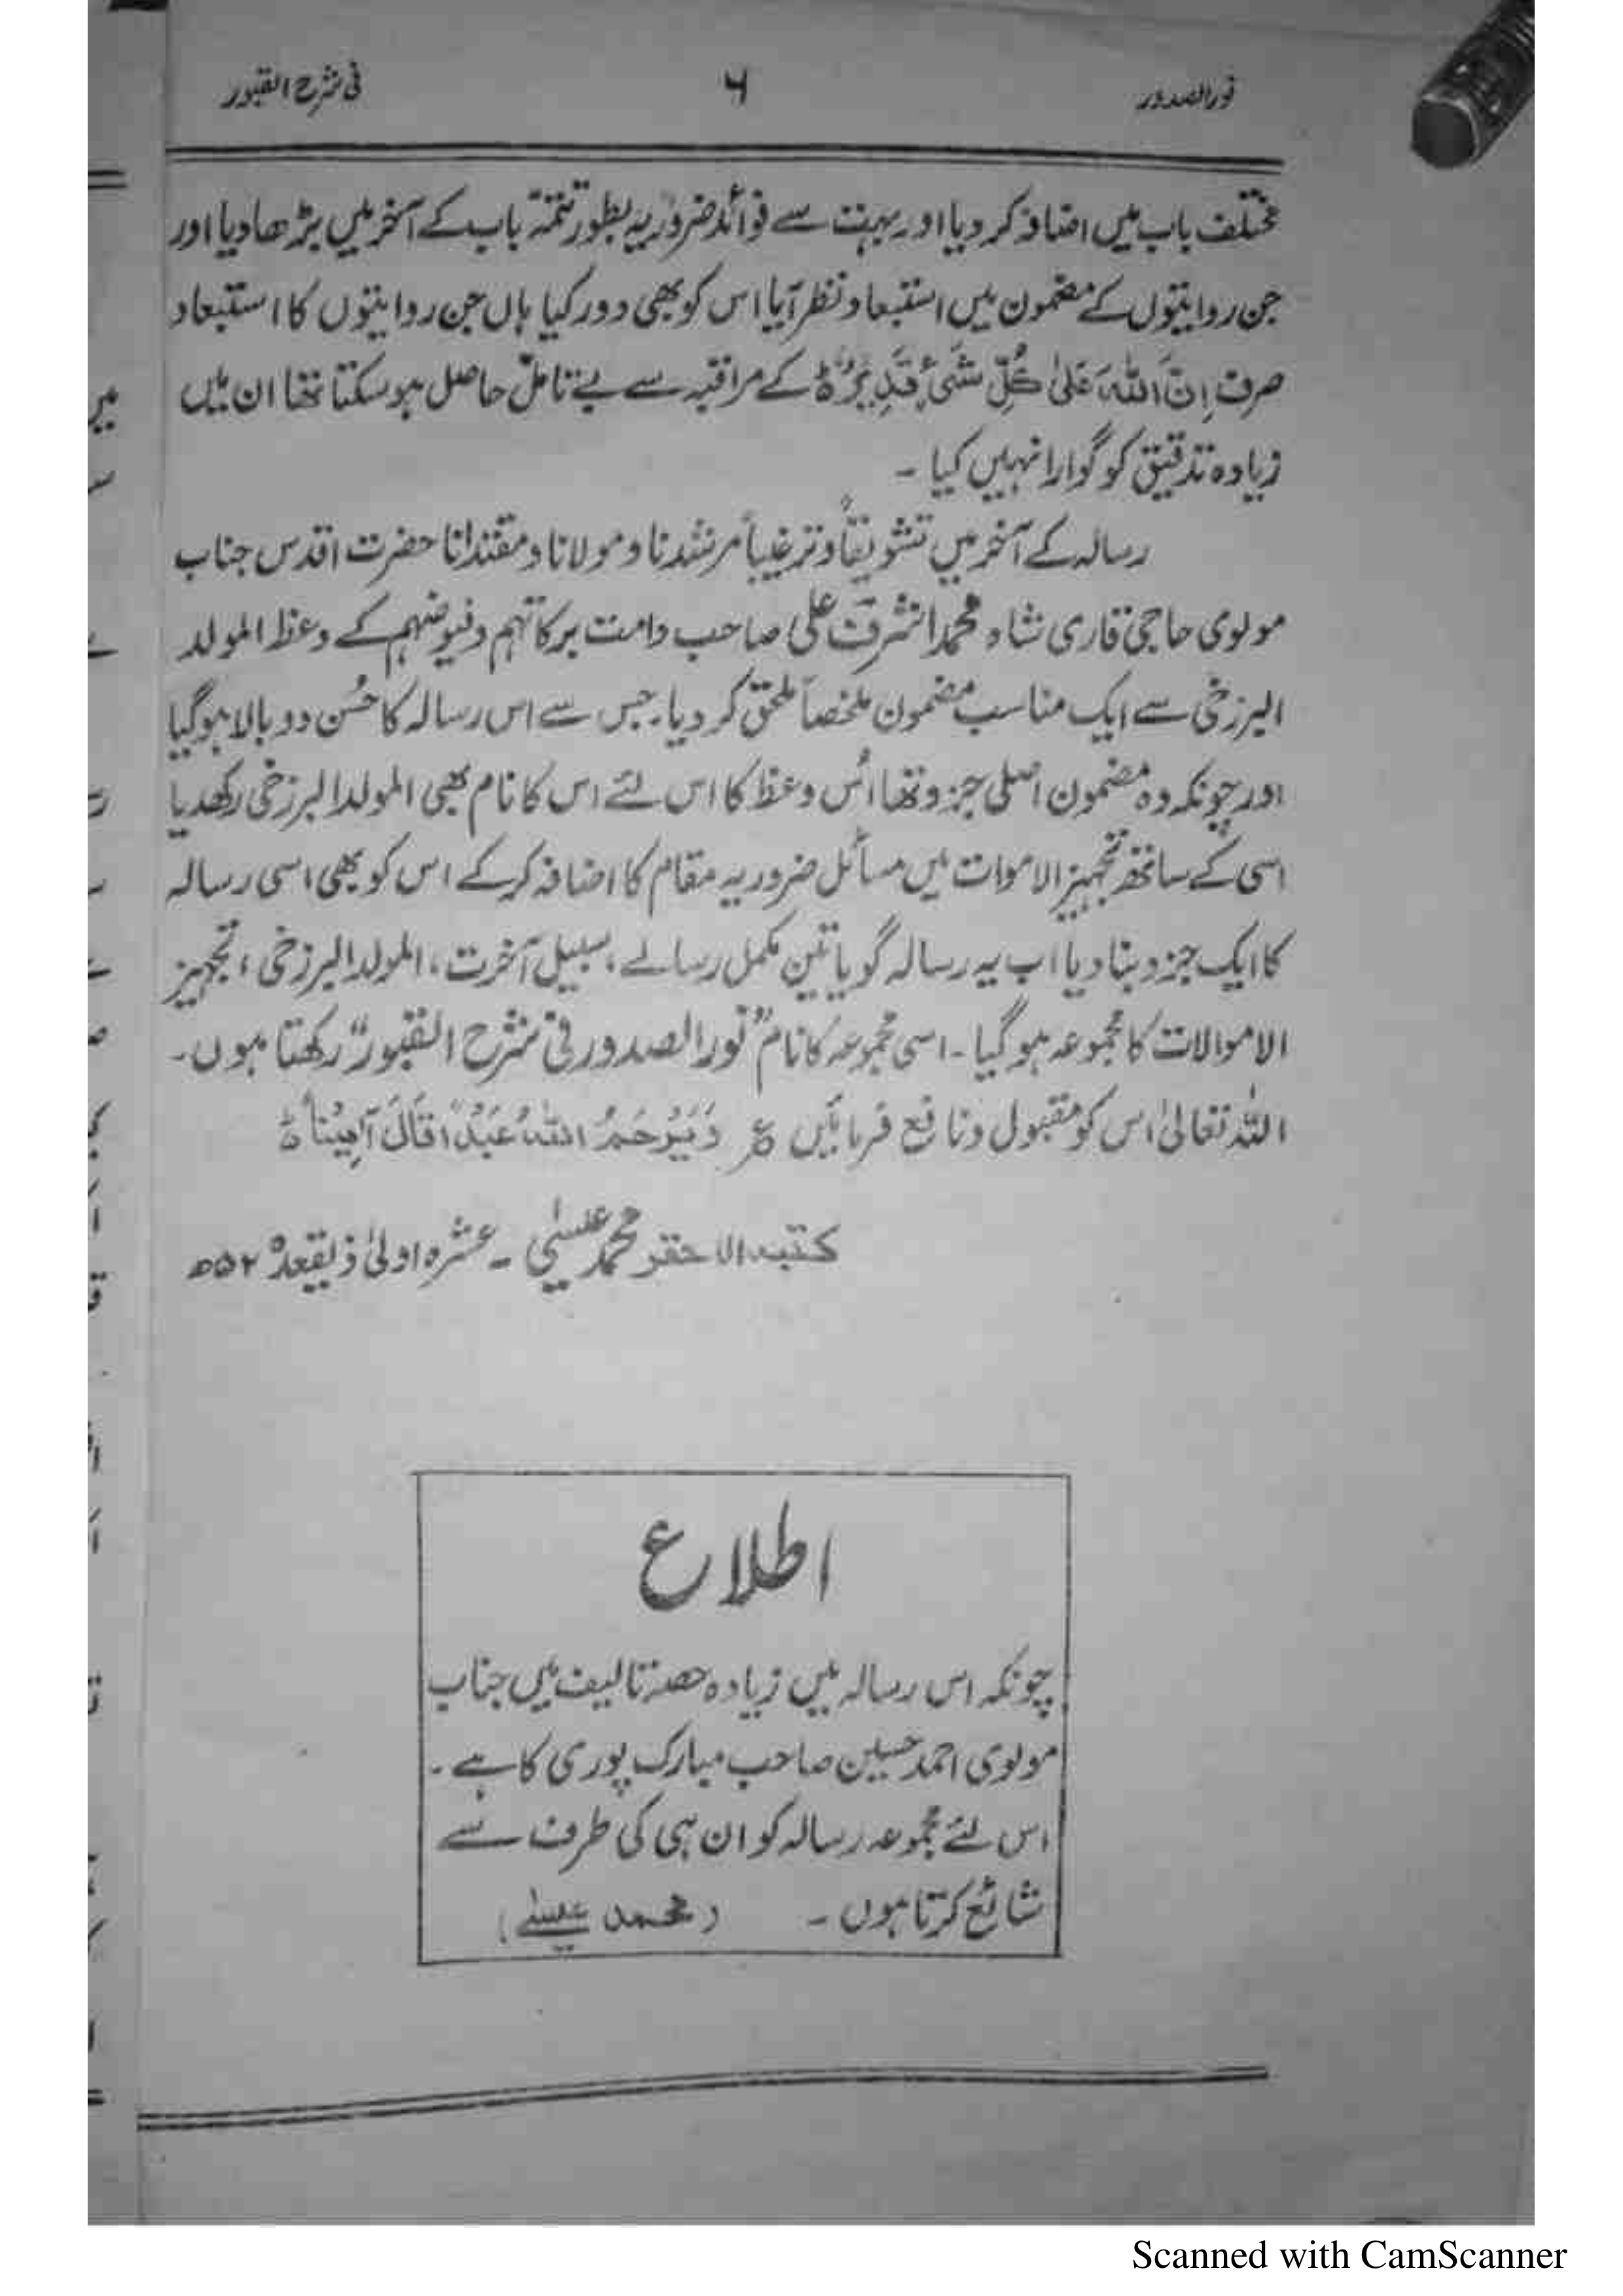 نورالصدور ۶ فی شرح القبور
مختلف باب میں اضافہ کر دیا اور بہت سے فوائد ضروریہ بطور تتمۃ باب کے آخر میں بڑھا دیا اور
جن روایتوں کے مضمون میں استبعاد نظر آیا اس کو بھی دور کیا ہاں جن روایتوں کا استبعاد
صرف اِنَّ اللّٰہَ عَلیٰ کُلِّ شَیْءٍ قَدِیْرٌ ط کے مراقبہ سے بے تامل حاصل ہو سکتا تھا ان میں
زیادہ تدقیق کو گوارا نہیں کیا ۔
رسالہ کے آخر میں تشویقاً و ترغیباً مرشدنا و مولانا و مقتدانا حضرت اقدس جناب
مولوی حاجی قاری شاہ محمد اشرف علی صاحب دامت برکاتہم و فیوضہم کے وعظ المولد
البرزخی سے ایک مناسب مضمون ملخصاً ملحق کر دیا۔ جس سے اس رسالہ کا حُسن دوبالا ہوگیا
اور چونکہ وہ مضمون اصلی جزو تھا اُس وعظ کا اس لئے اس کا نام بھی المولد البرزخی رکھدیا
اسی کے ساتھ تجہیز الاموات میں مسائل ضروریہ مقام کا اضافہ کر کے اس کو بھی اسی رسالہ
کا ایک جزو بنا دیا اب یہ رسالہ گویا تین مکمل رسالے، سبیل آخرت، المولد البرزخی، تجہیز
الاموالات کا مجموعہ ہو گیا ۔ اسی مجموعہ کا نام "نور الصدور فی شرح القبور" رکھتا ہوں۔
اللہ تعالیٰ اس کو مقبول و نافع فرمائیں ع وَیَرْحَمُ اللّٰہُ عَبْدًا قَالَ آمِیْنَا ط
کتبہ الاحقر محمد عیسٰی ۔ عشرہ اولیٰ ذیقعدہ ۵۲ھ
اطلاع
چونکہ اس رسالہ میں زیادہ حصہ تالیف میں جناب
مولوی احمد حسین صاحب مبارک پوری کا ہے ۔
اس لئے مجموعہ رسالہ کو ان ہی کی طرف سے
شائع کرتا ہوں ۔ (محمد عیسٰے)
Scanned with CamScanner